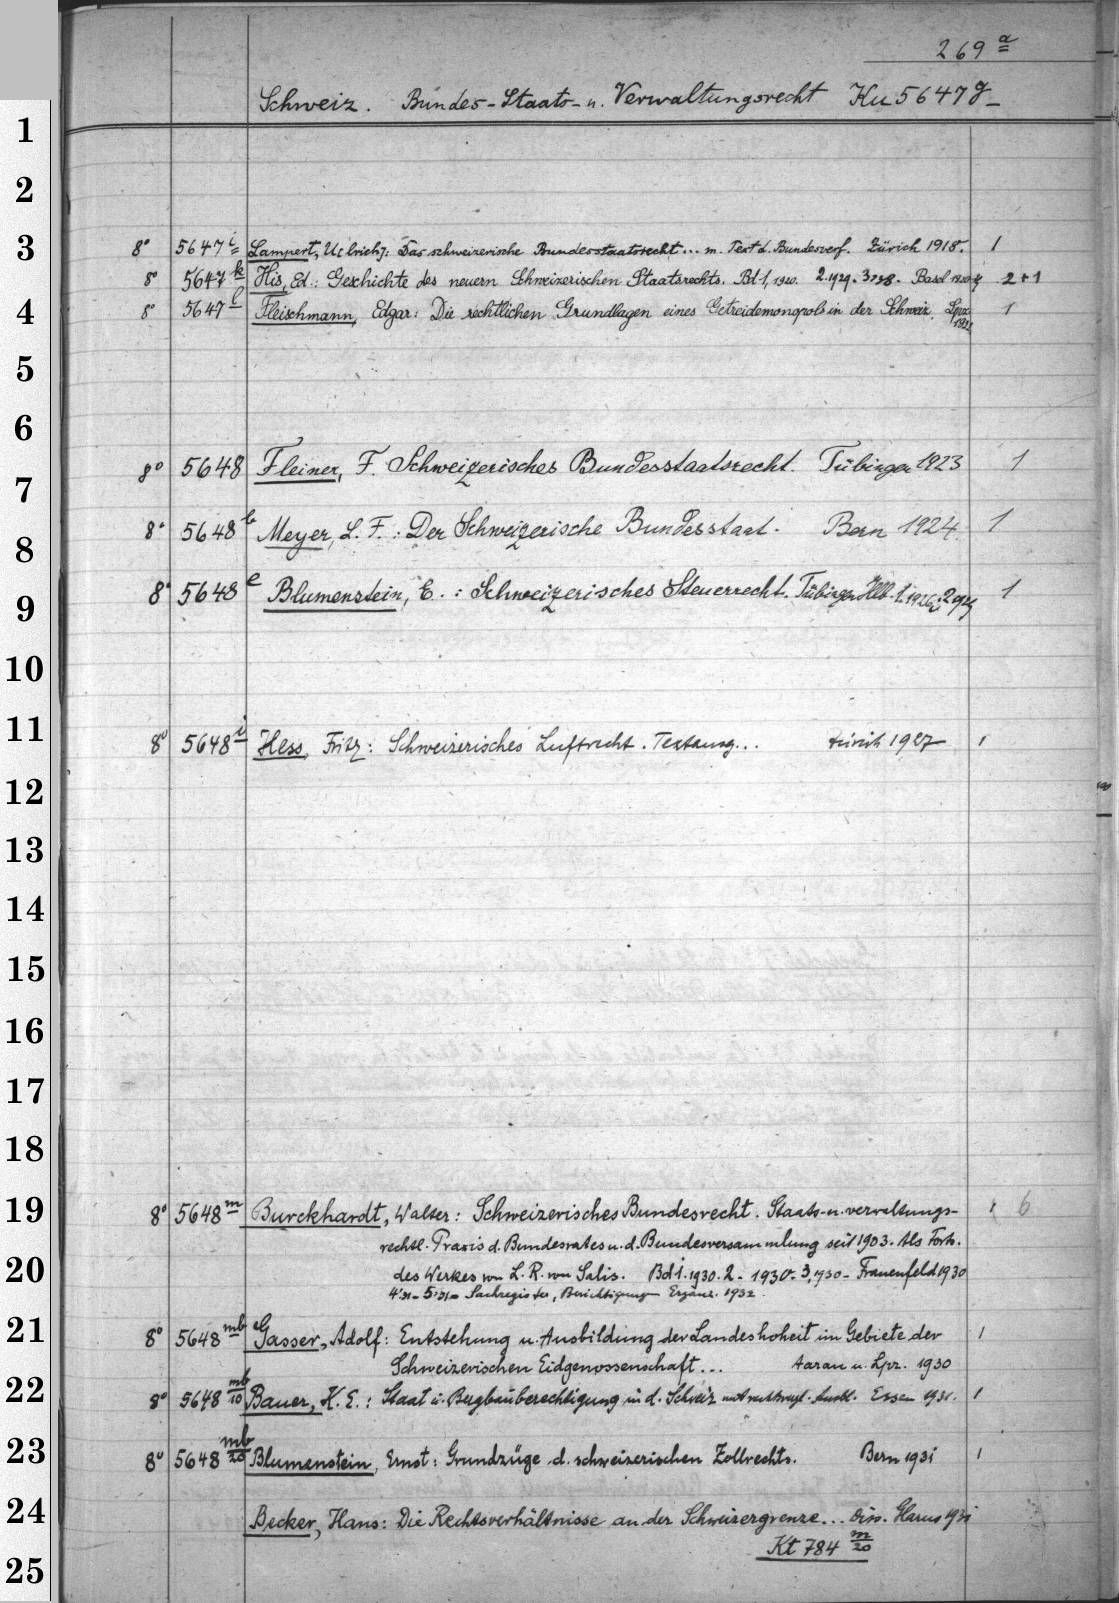 269 a
Schweiz. Bundes-Staats- u. Verwaltungsrecht Ku 5647 g
1
2
3
8° 5647 i Lampert, U[lrich]: Das schweizerische Bundesstaatsrecht... m. Text d. Bundesverf. Zürich 1918. 1
8° 5647 k His, Ed.: Geschichte des neuern Schweizerischen Staatsrechts. Bd. 1, 1920. 2. 1929. 3 1938. Basel 2+1
4
8° 5647 l Fleischmann, Edgar: Die rechtlichen Grundlagen eines Getreidemonopols in der Schweiz. Lpz. 1
5
6
8° 5648 Fleiner, F. Schweizerisches Bundesstaatsrecht. Tübingen 1923 1
7
8° 5648 b Meyer, L. F.: Der Schweizerische Bundesstaat. Bern 1924. 1
8
8° 5648 e Blumenstein, E.: Schweizerisches Steuerrecht. Tübingen Hlb. 1. 1926; 2 1929 1
9
10
11
8° 5648 i Hess, Fritz: Schweizerisches Luftrecht. Textausg... Zürich 1927 1
12
13
14
15
16
17
18
19
8° 5648 m Burckhardt, Walter: Schweizerisches Bundesrecht. Staats- u. verwaltungs- 6
rechtl. Praxis d. Bundesrates u. d. Bundesversammlung seit 1903. Als Forts.
20
des Werkes von L. R. von Salis. Bd 1. 1930. 2 - 1930 - 3, 1930 - Frauenfeld 1930
4 '31 - 5 '31 - Sachregister, Berichtigung Ergänz. 1932.
21
8° 5648 mb Gasser, Adolf: Entstehung u. Ausbildung der Landeshoheit im Gebiete der 1
Schweizerischen Eidgenossenschaft... Aarau u. Lpz. 1930
22
8° 5648 mb/10 Bauer, H. E.: Staat u. Bergbauberechtigung in d. Schweiz Essen 1931. 1
23
8° 5648 mb/20 Blumenstein, Ernst: Grundzüge d. schweizerischen Zollrechts. Bern 1931 1
24
Becker, Hans: Die Rechtsverhältnisse an der Schweizergrenze... Diss. Glarus 1931
Kt 784 m/20
25